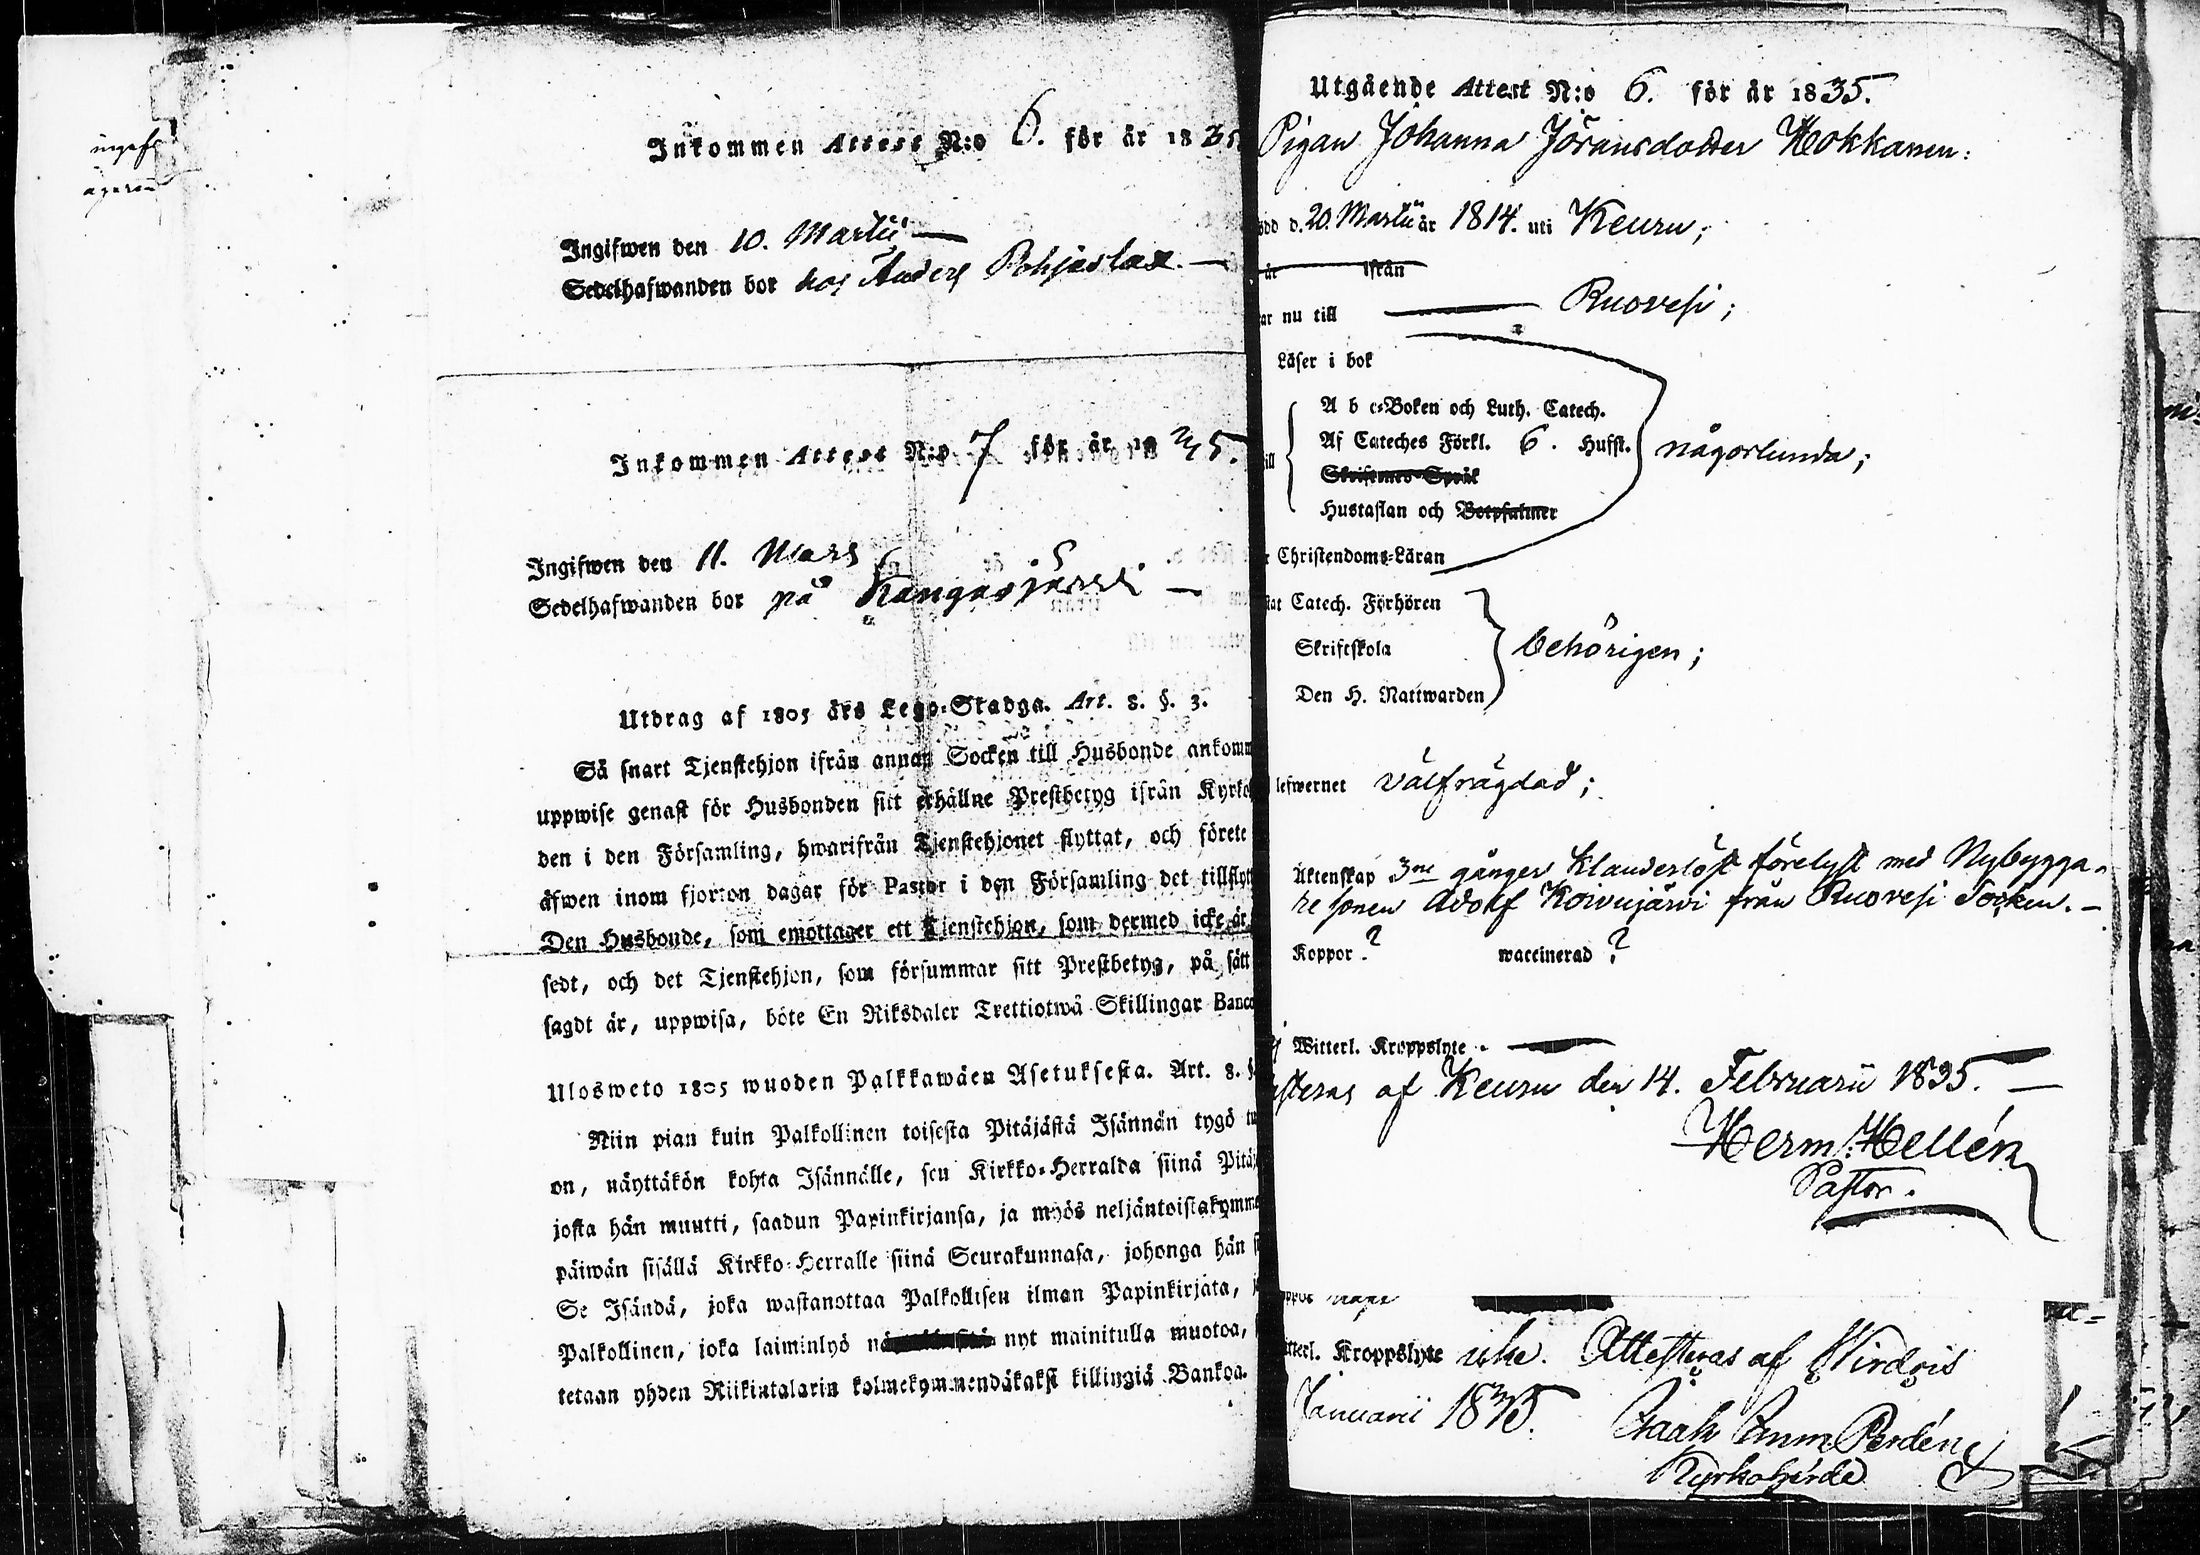 Inkommen Attest N:o 6. för år 1835
Ingifwen den 10. Martii
Sedelhafwanden bor hos Anders Pohjaslax.
Inkommen Attest N:o 7 för år 1835.
Ingifwen den 11. Mars
Sedelhafwanden bor på Kangasjärvi
Utdrag af 1805 års Lego-Stadga. Art. 8. §. 3.
Så snart Tjenstehjon ifrån annan Socken till Husbonde ankomm
uppwise genast för Husbonden sitt erhållne Prestbetyg ifrån Kyrko
den i den Församling, hwarifrån Tjenstehjonet flyttat, och förete
äfwen inom fjorton dagar för Pastor i den Församling det tillflyt
Den Husbonde, som emottager ett Tjenstehjon, som dermed icke är
sedt, och det Tjenstehjon, som försummar sitt Prestbetyg, på sätt
sagdt är, uppwisa, böte En Riksdaler Trettiotwå Skillingar Banco
Ulosweto 1805 wuoden Palkkawäen Asetuksesta. Art. 8. §
Niin pian kuin Palkollinen toisesta Pitäjästä Isännän tygö tu
on, näyttäkön kohta Isännälle, sen Kirkko-Herralda siinä Pitäj
josta hän muutti, saadun Papinkirjansa, ja myös neljäntoistakymme
päiwän sisällä Kirkko-Herralle siinä Seurakunnasa, johonga hän s
Se Isändä, joka wastanottaa Palkollisen ilman Papinkirjata, j
Palkollinen, joka laiminlyö nyt mainitulla muotoa,
tetaan yhden Riikintalarin kolmekymmendäkaksi killingiä Bankoa.
Utgående Attest N:o 6. för år 1835.
Pigan Johanna Jöransdotter Hokkanen:
ödd d. 20. Martii år 1814. uti Keuru;
år ifrån
ar nu till Ruovesi;
Läser i bok
A b c-Boken och Luth. Catech.
ill Af Cateches Förkl. 6. Hufst. någorlunda;
Skriftenes Språk
Hustaflan och Botpsalmer
r Christendoms-Läran
stat Catech. Förhören
Skriftskola behörigen;
Den H. Nattwarden
lefwernet välfrägdad;
Äktenskap 3ne gånger klanderlöst förelyst med Nybygga-
re sonen Adolf Koivujärvi från Ruovesi Socken.
Koppor? waccinerad?
Witterl. Kroppslyte.
steras af Keuru den 14. Februarii 1835.
Herm: Hellén
Pastor.
itterl. Kroppslyte icke. Attesteras af Wirdois
Januarii 1835.
Isaak Emm. Perdén
Kyrkoherde